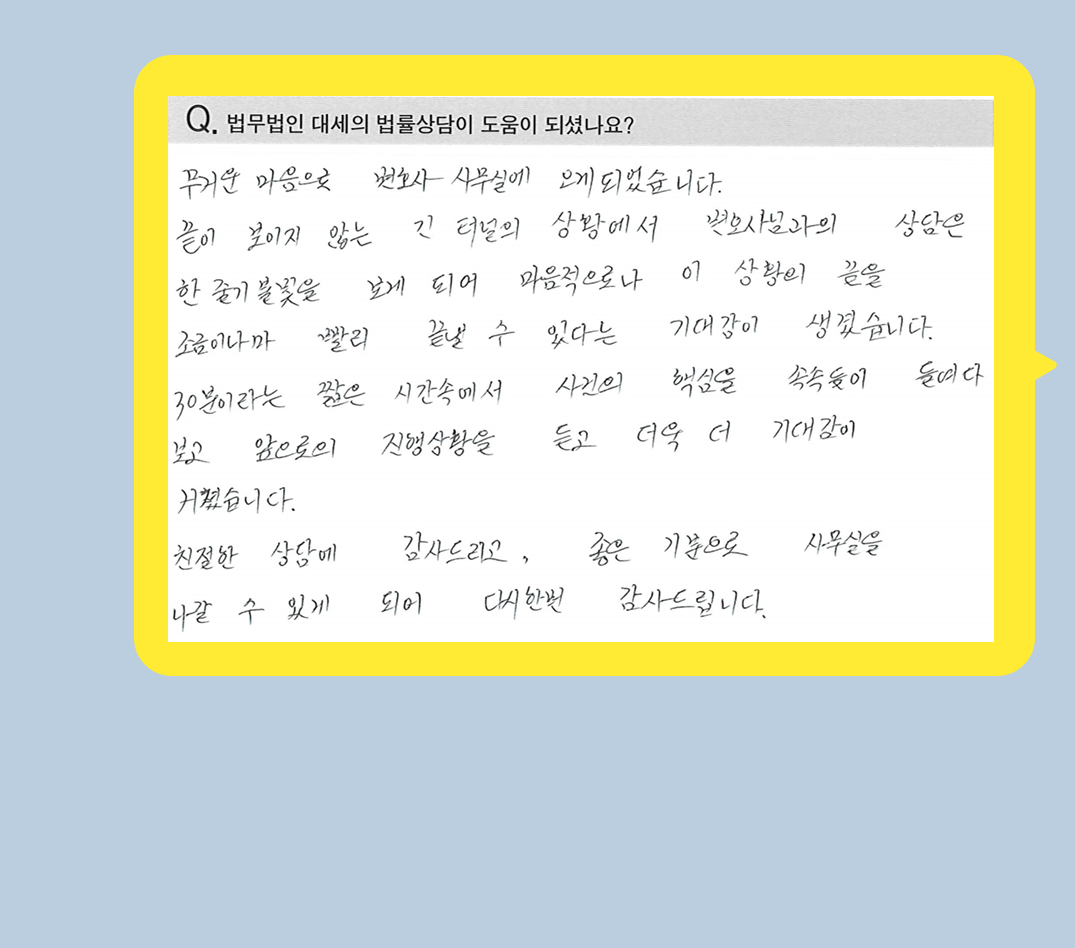 Q. 법무법인 대세의 법률상담이 도움이 되셨나요?
무거운 마음으로 변호사 사무실에 오게되었습니다.
끝이 보이지 않는 긴 터널의 상황에서 변호사님과의 상담은
한 줄기 불꽃을 보게 되어 마음적으로나 이 상황의 끝을
조금이나마 빨리 끝낼 수 있다는 기대감이 생겼습니다.
30분이라는 짧은 시간속에서 사건의 핵심을 속속들이 들여다
보고 앞으로의 진행상황을 듣고 더욱 더 기대감이
커졌습니다.
친절한 상담에 감사드리고, 좋은 기분으로 사무실을
나갈 수 있게 되어 다시한번 감사드립니다.